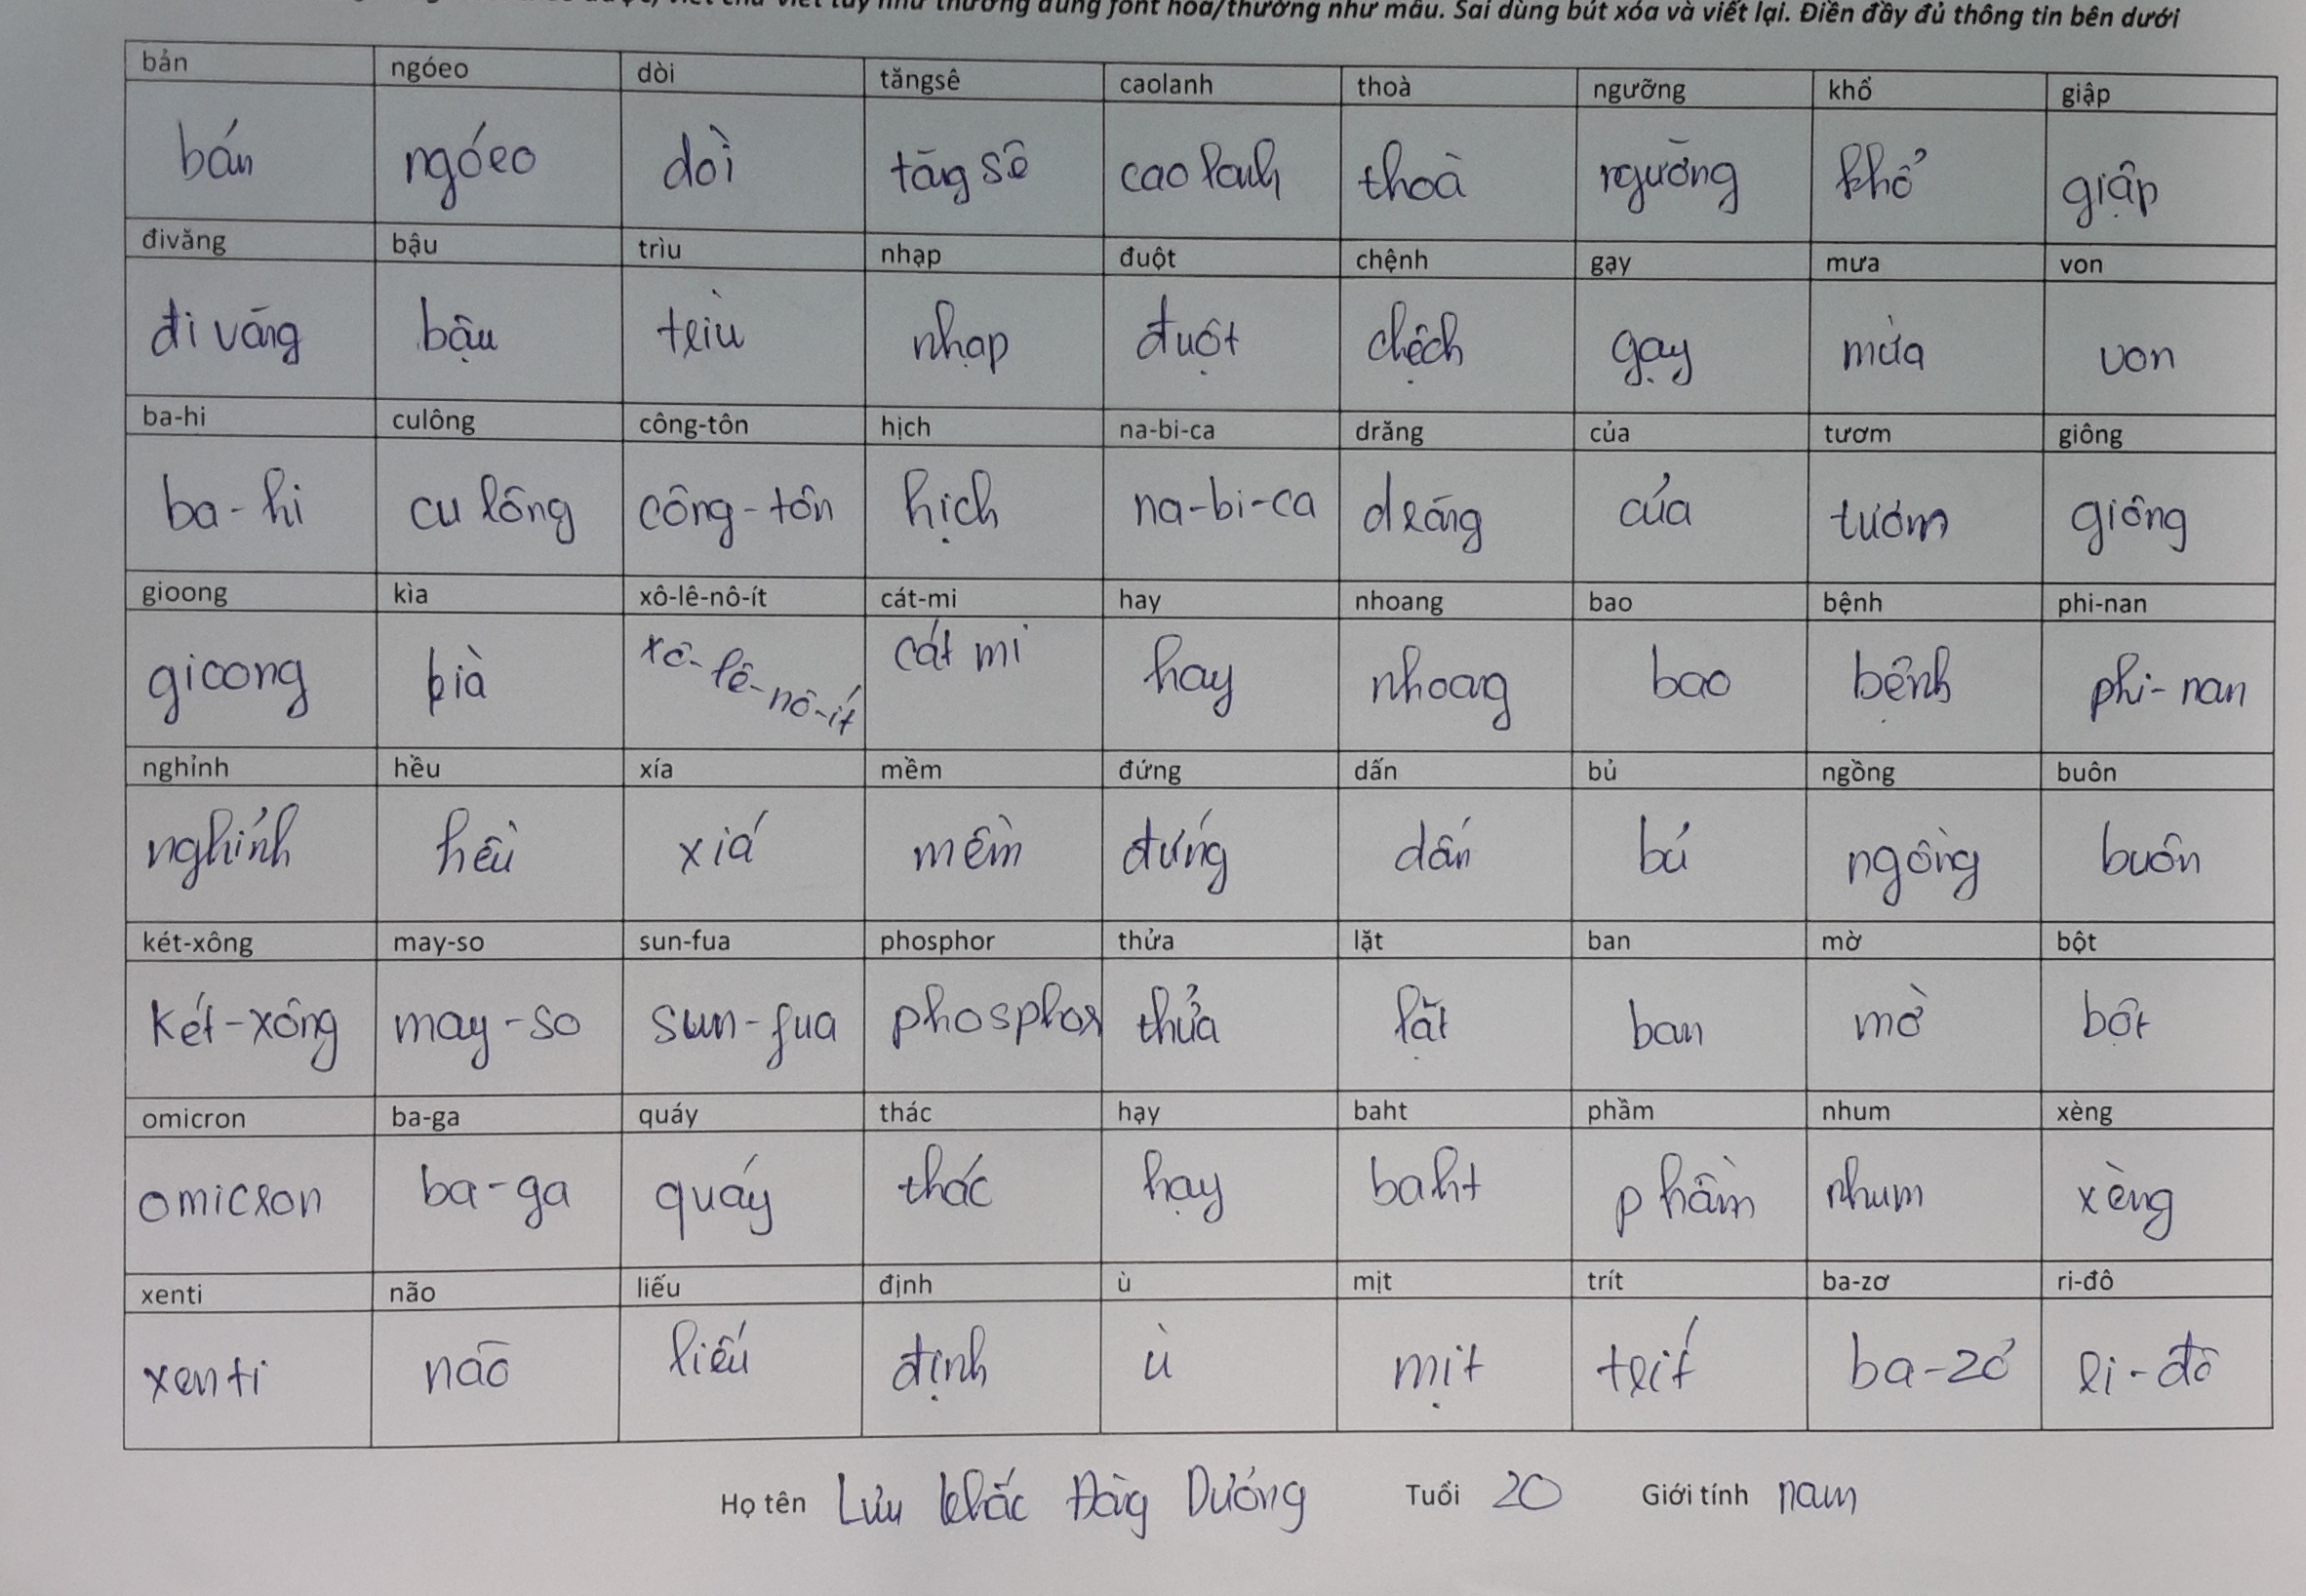 được, viết chữ viết tay như thường dùng font hoa/thường như mẫu. Sai dùng bút xóa và viết lại. Điền đầy đủ thông tin bên dưới
bản ngóeo dòi tăngsê caolanh thoà ngưỡng khổ giập
bán ngóeo dòi tăng sê cao lanh thoà ngưỡng khổ giập
đivăng bậu trìu nhạp đuột chệnh gạy mưa von
đi văng bậu trìu nhạp đuột chệch gạy mưa von
ba-hi culông công-tôn hịch na-bi-ca drăng của tươm giông
ba-hi cu lông công-tôn hịch na-bi-ca drăng của tươm giông
gioong kìa xô-lê-nô-ít cát-mi hay nhoang bao bệnh phi-nan
gioong kìa xô-lê-nô-ít cát mi hay nhoang bao bệnh phi-nan
nghỉnh hều xía mềm đứng dấn bủ ngồng buôn
nghỉnh hều xía mềm đứng dấn bủ ngồng buôn
két-xông may-so sun-fua phosphor thửa lặt ban mờ bột
két-xông may-so sun-fua phosphor thửa lặt ban mờ bột
omicron ba-ga quáy thác hạy baht phầm nhum xèng
omicron ba-ga quáy thác hạy baht phầm nhum xèng
xenti não liếu định ù mịt trít ba-zơ ri-đô
xenti não liếu định ù mịt trít ba-zơ ri-đô
Họ tên Lưu Khắc Đăng Dương Tuổi 20 Giới tính nam